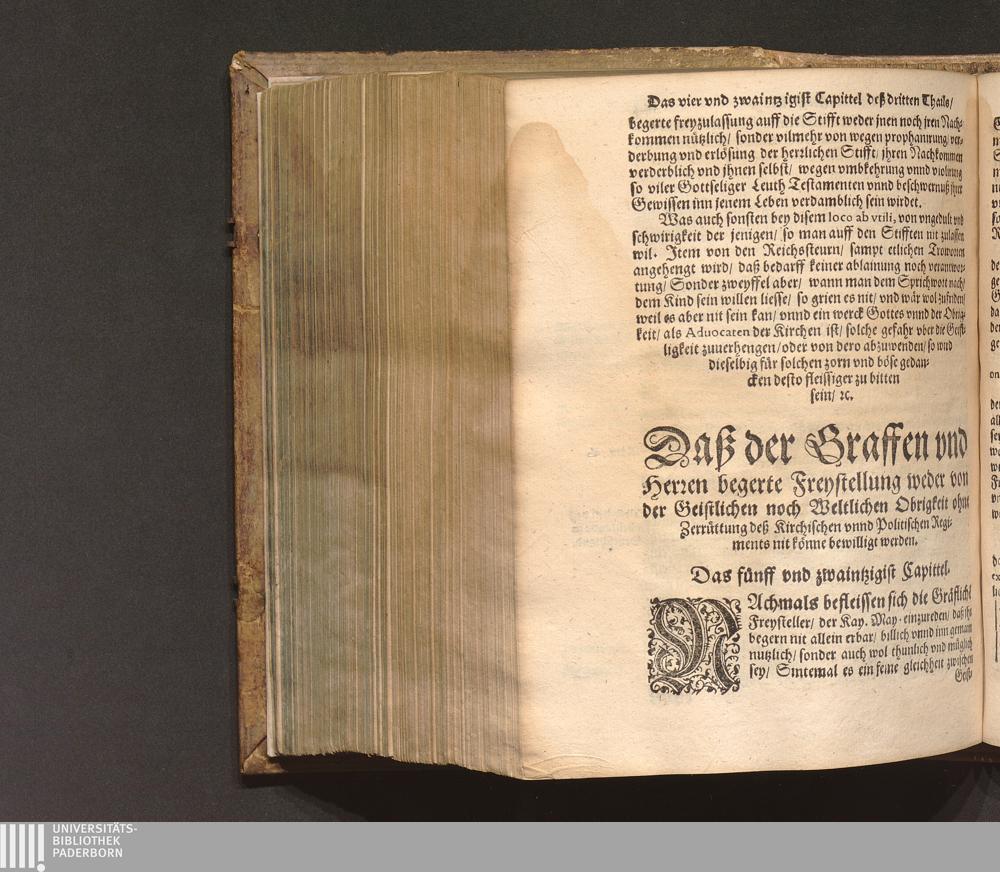 Das vier vnd zwaintzigist Capittel deß dritten Thails/
begerte freyzulassung auff die Stifft weder jnen noch jren Nach-
kommen nützlich/ sonder vilmehr von wegen prophanirung/ ver-
derbung vnd erlösung der herrlichen Stifft/ jhren Nachkommen
verderblich vnd jhnen selbst/ wegen vmbkehrung vnnd violirung
so viler Gottseliger Leuth Testamenten vnnd beschwernuß jhrer
Gewissen inn jenem Leben verdamblich sein wirdet.
Was auch sonsten bey disem loco ab vtili, von vngedult vnd
schwirigkeit der jenigen/ so man auff den Stifften nit zulassen
wil. Item von den Reichssteurn/ sampt etlichen Trowworten
angehengt wird/ daß bedarff keiner ablainung noch verantwor-
tung/ Sonder zweyffel aber/ wann man dem Sprichwort nach/
dem Kind sein willen liesse/ so grien es nit/ vnd wär wol zufinden/
weil es aber nit sein kan/ vnnd ein werck Gottes vnnd der Obrig-
keit/ als Aduocaten der Kirchen ist/ solche gefahr vber die Geist-
ligkeit zuuerhengen/ oder von dero abzuwenden/ so wird
dieselbig für solchen zorn vnd böse gedan-
cken desto fleissiger zu bitten
sein/ ꝛc.
Daß der Graffen vnd
Herren begerte Freystellung weder von
der Geistlichen noch Weltlichen Obrigkeit ohne
Zerrüttung deß Kirchischen vnnd Politischen Regi-
ments nit könne bewilligt werden.
Das fünff vnd zwaintzigist Capittel.
NAchmals befleissen sich die Gräfliche
Freysteller/ der Kay. May. einzureden/ daß ihr
begern nit allein erbar/ billich vnnd inn gemain
nutzlich/ sonder auch wol thunlich vnd müglich
sey/ Sintemal es ein feine gleichheit zwischen
Geist-
UNIVERSITÄTS-
BIBLIOTHEK
PADERBORN